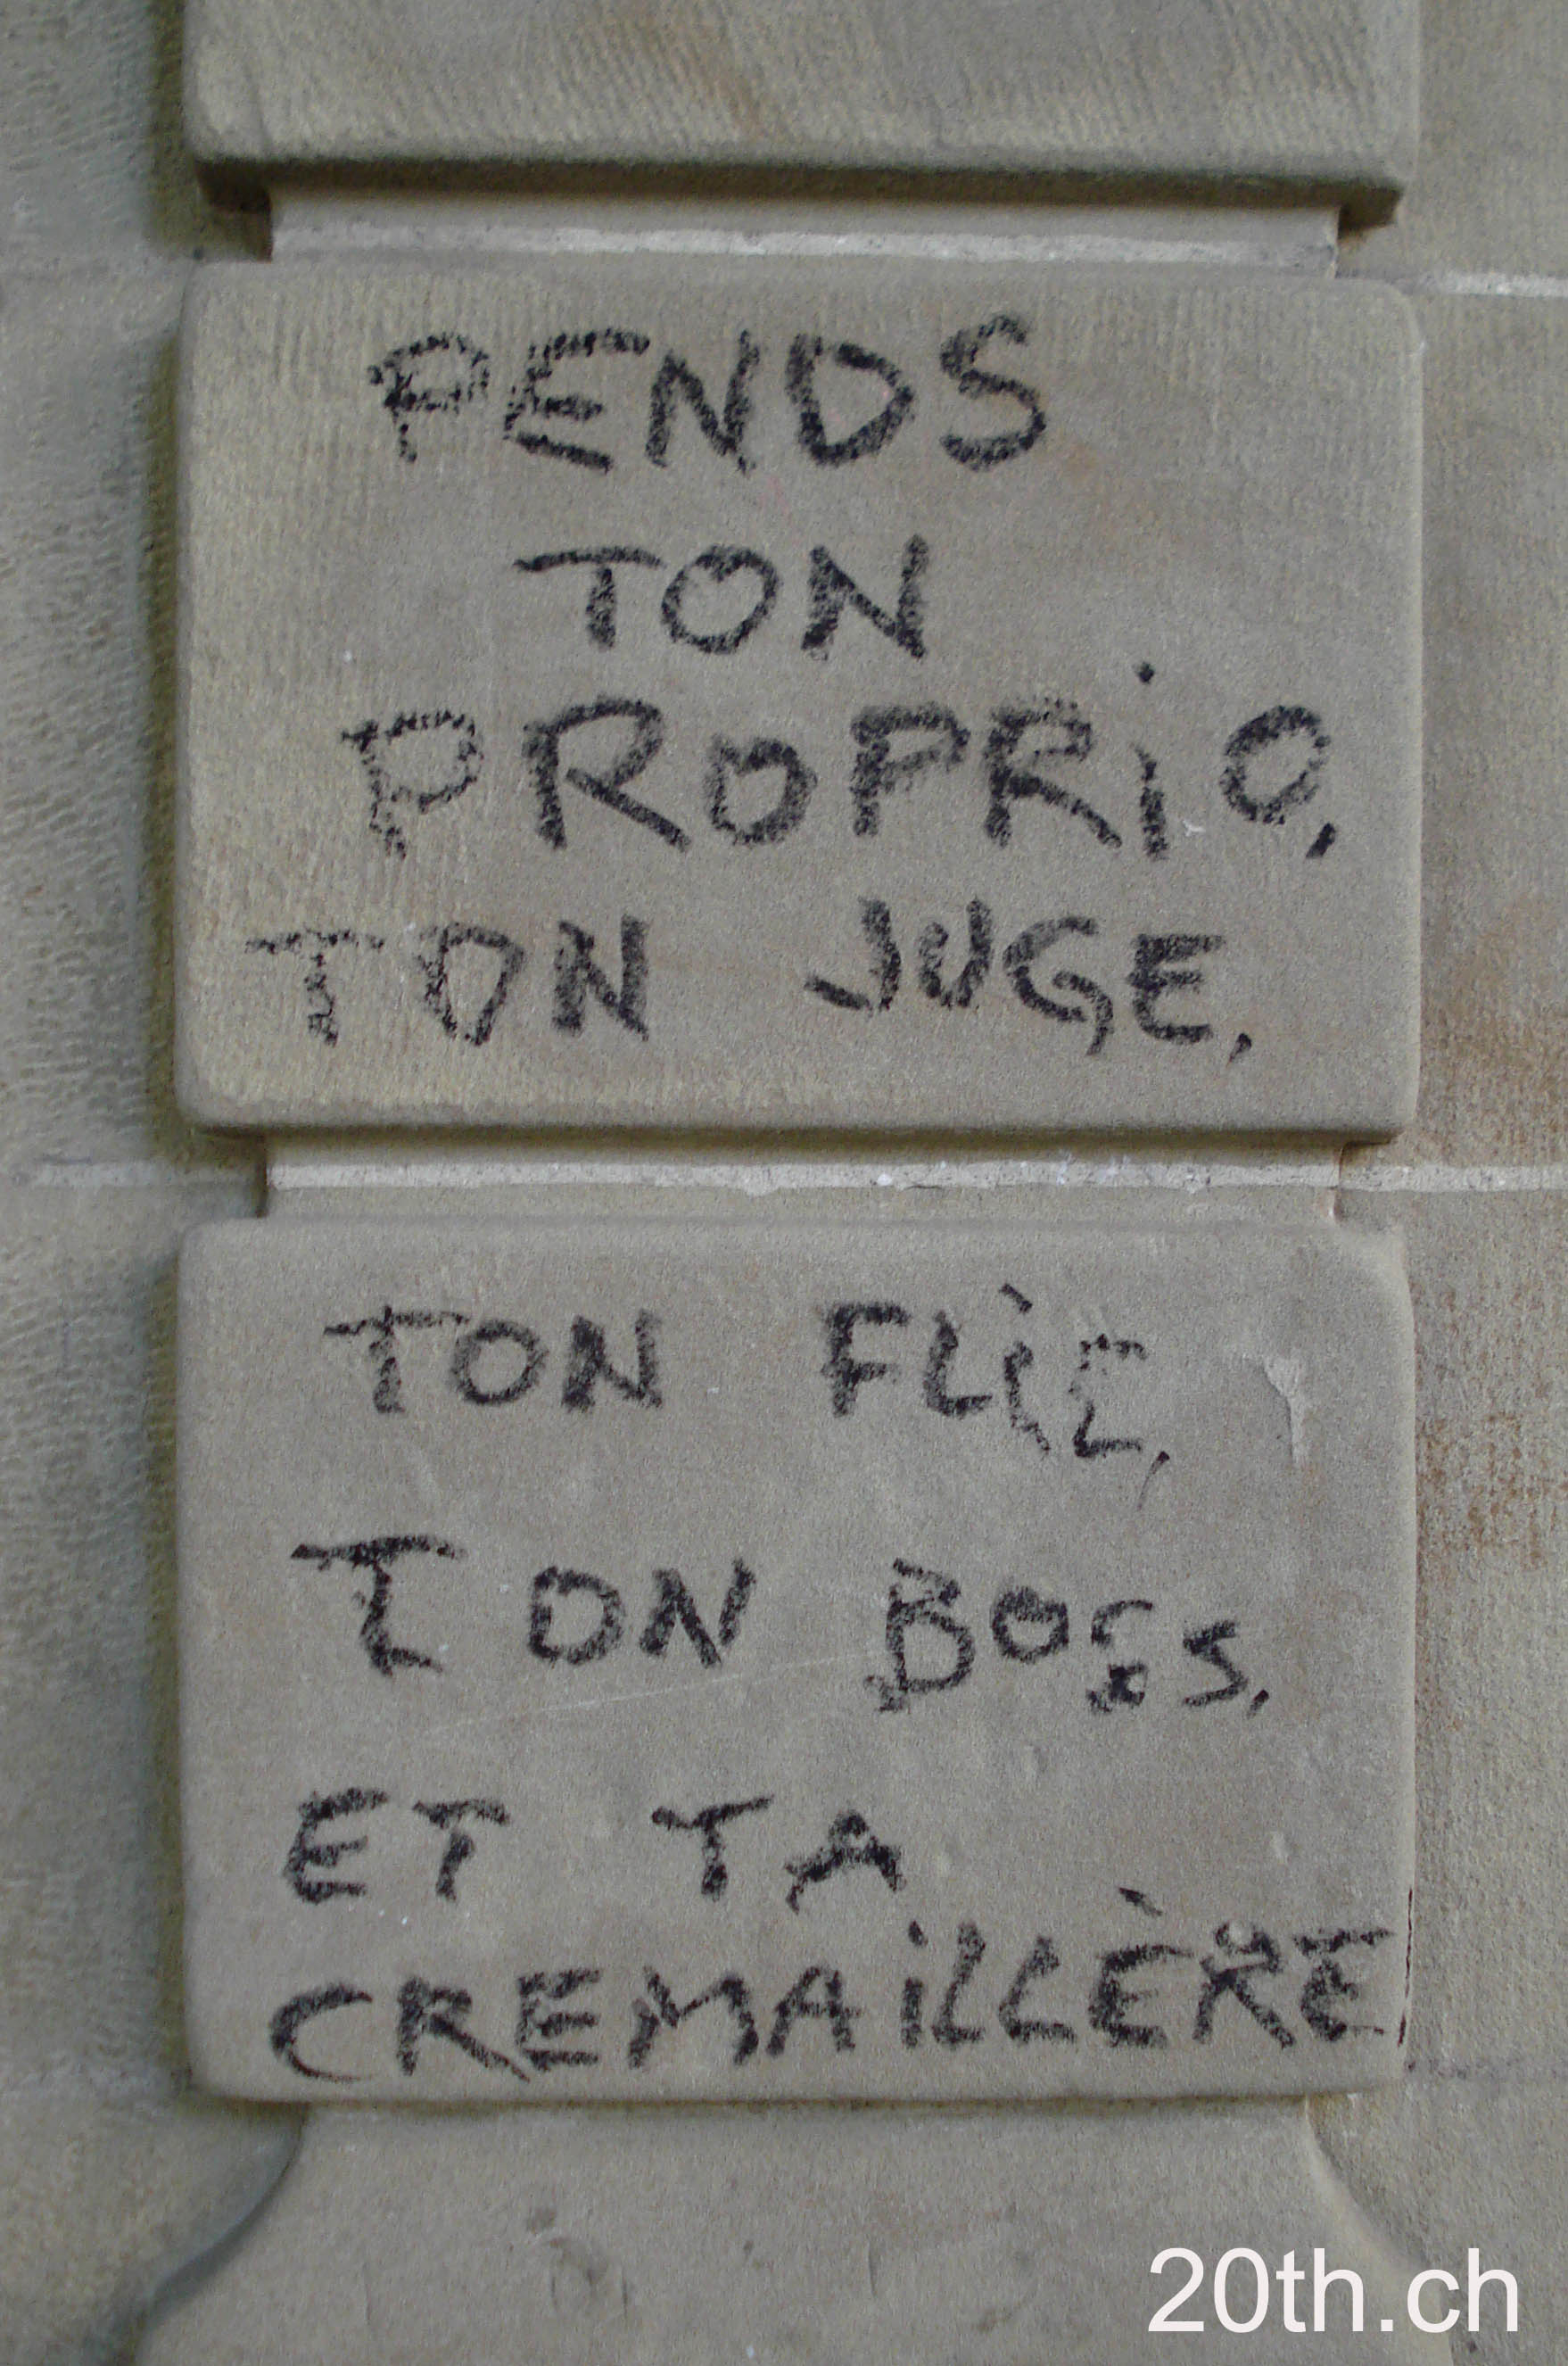 PENDS
TON
PROPRiO,
TON JUGE,
TON FLiC,
TON BOSS,
ET TA
CREMAiLLÈRE
20th.ch